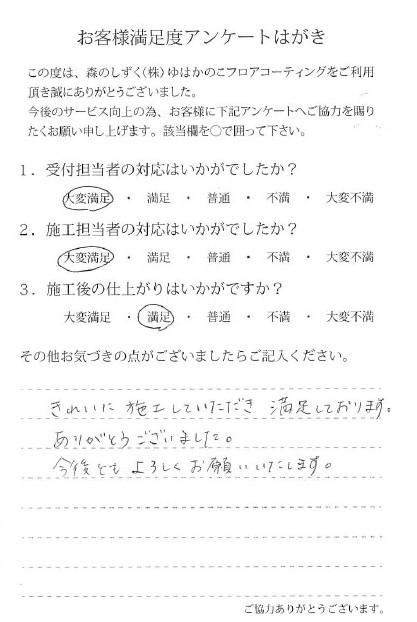 お客様満足度アンケートはがき
この度は、森のしずく(株)ゆはかのこフロアコーティングをご利用
頂き誠にありがとうございました。
今後のサービス向上の為、お客様に下記アンケートへご協力を賜り
たくお願い申し上げます。該当欄を○で囲って下さい。
1．受付担当者の対応はいかがでしたか？
大変満足 ・ 満足 ・ 普通 ・ 不満 ・ 大変不満
2．施工担当者の対応はいかがでしたか？
大変満足 ・ 満足 ・ 普通 ・ 不満 ・ 大変不満
3．施工後の仕上がりはいかがですか？
大変満足 ・ 満足 ・ 普通 ・ 不満 ・ 大変不満
その他お気づきの点がございましたらご記入ください。
きれいに施工していただき 満足しております。
ありがとうございました。
今後ともよろしくお願いいたします。
ご協力ありがとうございます。